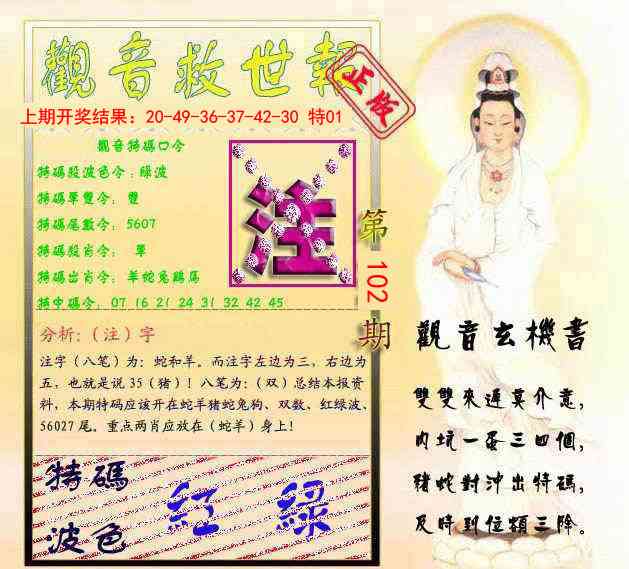 觀音救世報
正版
上期开奖结果：20-49-36-37-42-30 特01
觀音特碼口令
特碼殺波色令：綠波
特碼單雙令： 雙
特碼尾數令： 5607
特碼殺肖令： 單
特碼出肖令： 羊蛇兔鷄馬
特中碼令： 07 16 21 24 31 32 42 45
注
第
102
期
分析：（注）字
注字（八笔）为：蛇和羊。而注字左边为三，右边为
五，也就是说 35（猪）！八笔为：（双）总结本报资
料，本期特码应该开在蛇羊猪蛇兔狗、双数、红绿波、
56027 尾。重点两肖应放在（蛇羊）身上！
特碼
波色
紅 綠
觀音玄機書
雙雙來遲莫介意，
內坑一蛋三四個，
豬蛇對沖出特碼，
及時到位類三降。